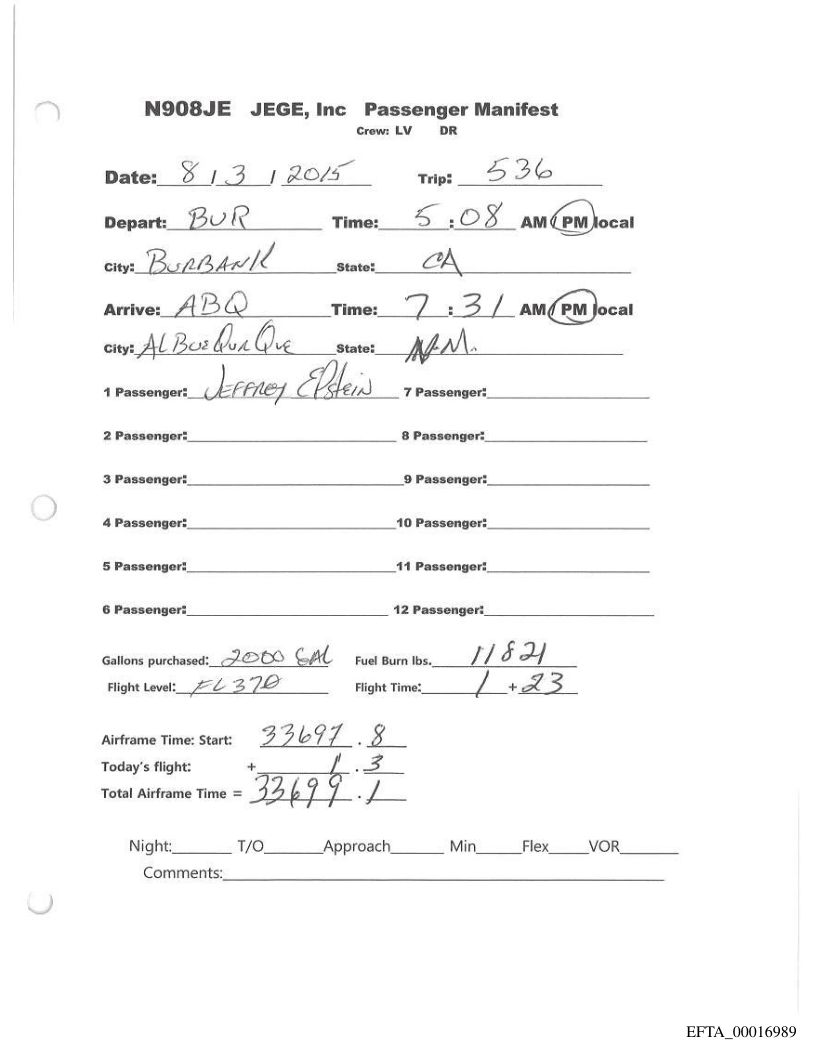 N908JE JEGE, Inc Passenger Manifest
Crew: LV DR
Date: 8 / 3 / 2015 Trip: 536
Depart: BUR Time: 5 : 08 AM / PM local
City: BURBANK State: CA
Arrive: ABQ Time: 7 : 31 AM / PM local
City: ALBUEQURQUE State: N.M.
1 Passenger: JEFFREY EPstEIN 7 Passenger:
2 Passenger: 8 Passenger:
3 Passenger: 9 Passenger:
4 Passenger: 10 Passenger:
5 Passenger: 11 Passenger:
6 Passenger: 12 Passenger:
Gallons purchased: 2000 GAL Fuel Burn lbs. 11821
Flight Level: FL 370 Flight Time: 1 + 23
Airframe Time: Start: 33697 . 8
Today's flight: + 1 . 3
Total Airframe Time = 33699 . 1
Night: T/O Approach Min Flex VOR
Comments:
EFTA_00016989